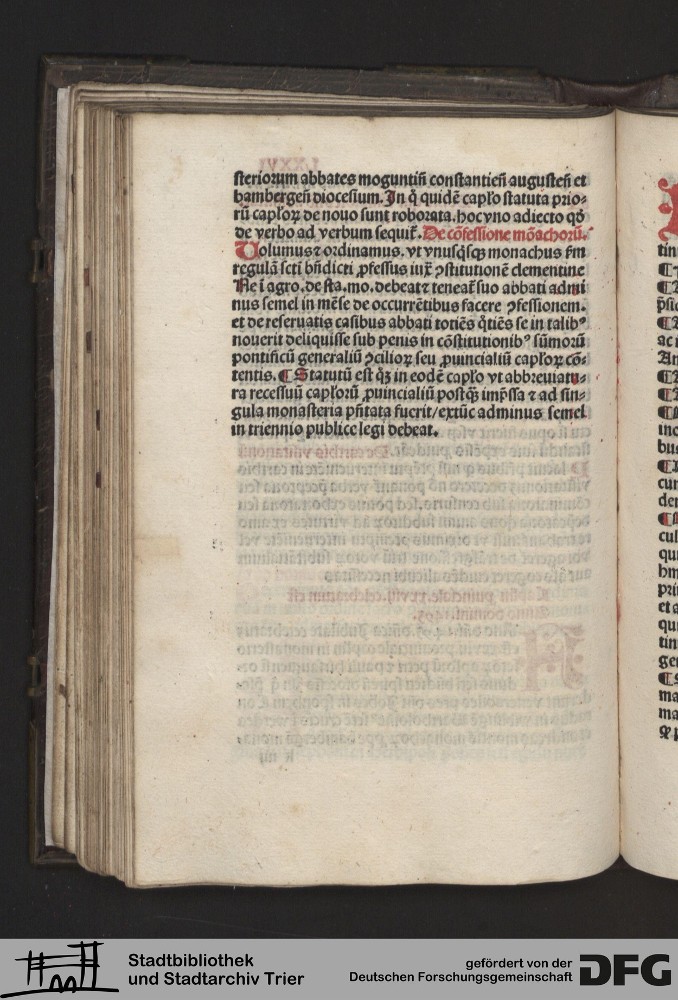 steriorum abbates moguntiñ constantieñ augusteñ et
bambergeñ diocesium. In q̃ quidẽ capło statuta prio-
rũ capłoꝝ de nouo sunt roborata. hoc vno adiecto qđ
de verbo ad verbum sequit᷑. De cõfessione mõachorũ.
Uolumus ⁊ ordinamus. vt vnusq̃sqꝫ monachus s̃m
regulã scti bñdicti ꝓfessus iux̃ ꝯstitutionẽ clementine
Ne ĩ agro. de sta. mo. debeat ⁊ teneat᷑ suo abbati admi
nus semel in mẽse de occurrẽtibus facere ꝯfessionem.
et de reseruatis casibus abbati totiẽs q̃tiẽs se in talibꝰ
nouerit deliquisse sub penis in cõstitutionibꝰ sũmorũ
pontificũ generaliũ ꝯcilioꝝ seu ꝓuincialiũ capłoꝝ cõ-
tentis. ¶ Statutũ est q̃ꝫ in eodẽ capło vt abbreuiatu-
ra recessuũ capłorũ ꝓuincialiũ postq̃ꝫ imp̃ssa ⁊ ad sin-
gula monasteria p̃ntata fuerit/extũc adminus semel
in triennio publice legi debeat.
tin
¶
¶
¶
ac
An
¶
¶
¶
inc
bus
¶
cur
der
¶
cul
qu
hm
pri
et a
qui
tin
ger
¶
ma
ma
Stadtbibliothek
und Stadtarchiv Trier
gefördert von der
Deutschen Forschungsgemeinschaft
DFG